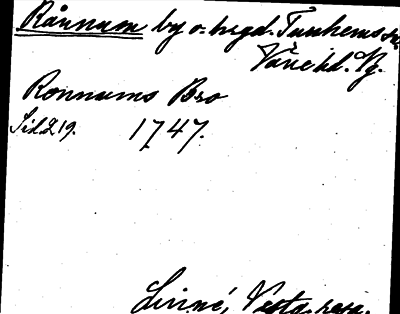 Rånnum by o. hrgd. Tunhems sn
Väne hd. Vg.
Ronnums Bro
Sid 219. 1747.
Linné, Vestg. resa.